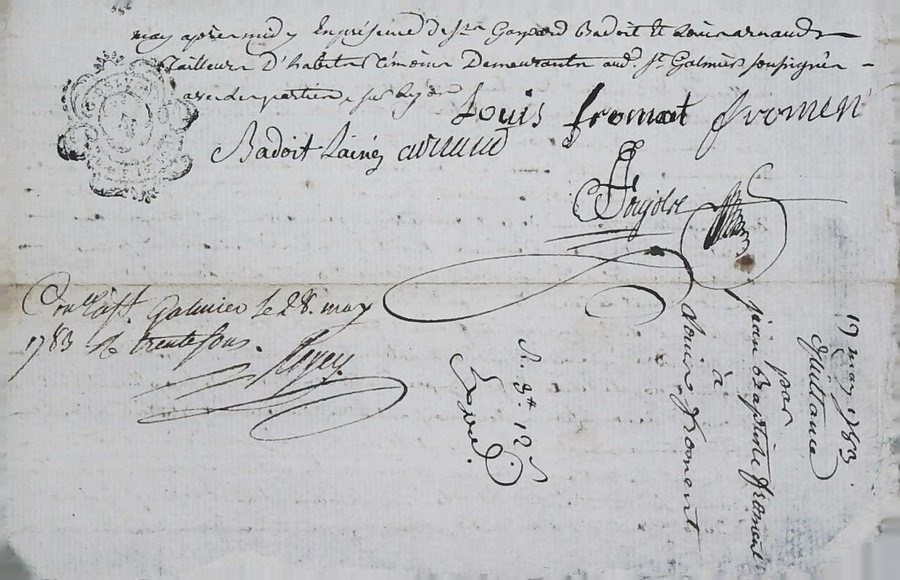 may après midy En présence de Sr Gaspard Badoit Et Louis arnaud
Tailleurs D'habits témoins Demeurants aud. St Galmier soussignés
avec les parties
Louis fromat fromen
Badoit Lainé arnaud
Conlé à St Galmier le 28. may
1783 Re trente sous.
17 may 1783.
Quittance
par
jean Baptiste froment
à
Louis froment
R. 3# 12s